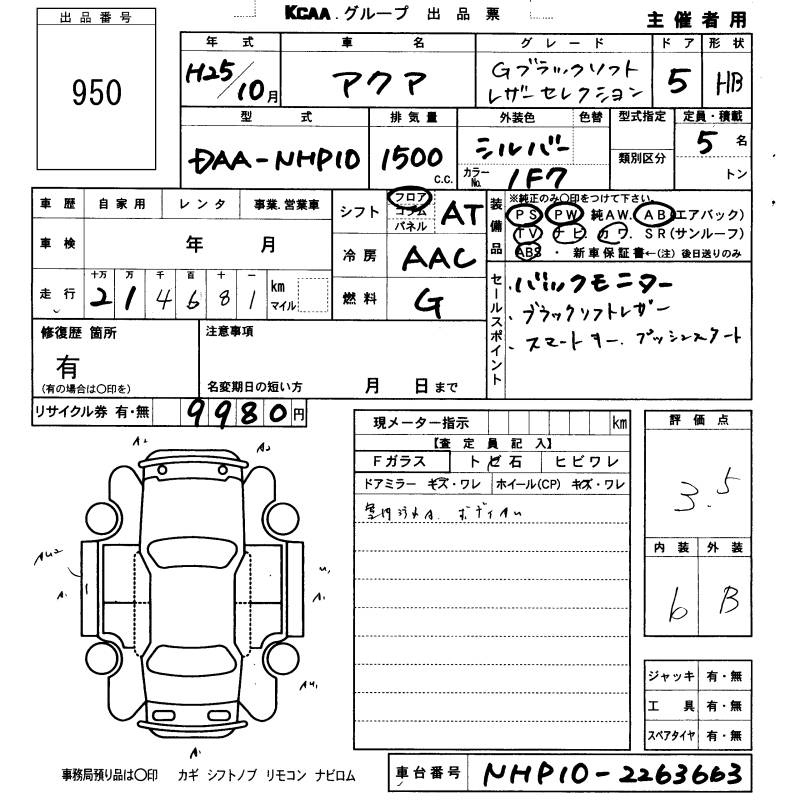 KCAA.グループ 出品票
主催者用
出品番号
950
年式 車名 グレード ドア 形状
H25/10月 アクア Gブラックソフト レザーセレクション 5 HB
型式 排気量 外装色 色替 型式指定 定員・積載
DAA-NHP10 1500 C.C. シルバー 5名
カラーNo. 1F7 類別区分 トン
車歴 自家用 レンタ 事業.営業車
車検 年 月
走行 十万 万 千 百 十 一
2 1 4 6 8 1 km マイル
シフト フロア コラム パネル AT
冷房 AAC
燃料 G
装備品 ※純正のみ〇印をつけて下さい。
PS PW 純AW. AB(エアバック)
TV ナビ. カワ. SR(サンルーフ)
ABS ・ 新車保証書←(注) 後日送りのみ
セールスポイント
・バックモニター
・ブラックソフトレザー
・スマートキー.プッシュスタート
修復歴 箇所 注意事項
有
(有の場合は〇印を) 名変期日の短い方 月 日まで
リサイクル券 有・無 9980円
現メーター指示 km
【査定員記入】
Fガラス トビ石 ヒビワレ
ドアミラー キズ・ワレ ホイール(CP) キズ・ワレ
ボディAU
評価点
3.5
内装 外装
6 B
ジャッキ 有・無
工具 有・無
スペアタイヤ 有・無
A2
A2
AU2
A1
U1
A1
AU1
A1
事務局預り品は〇印 カギ シフトノブ リモコン ナビロム
車台番号 NHP10-2263663